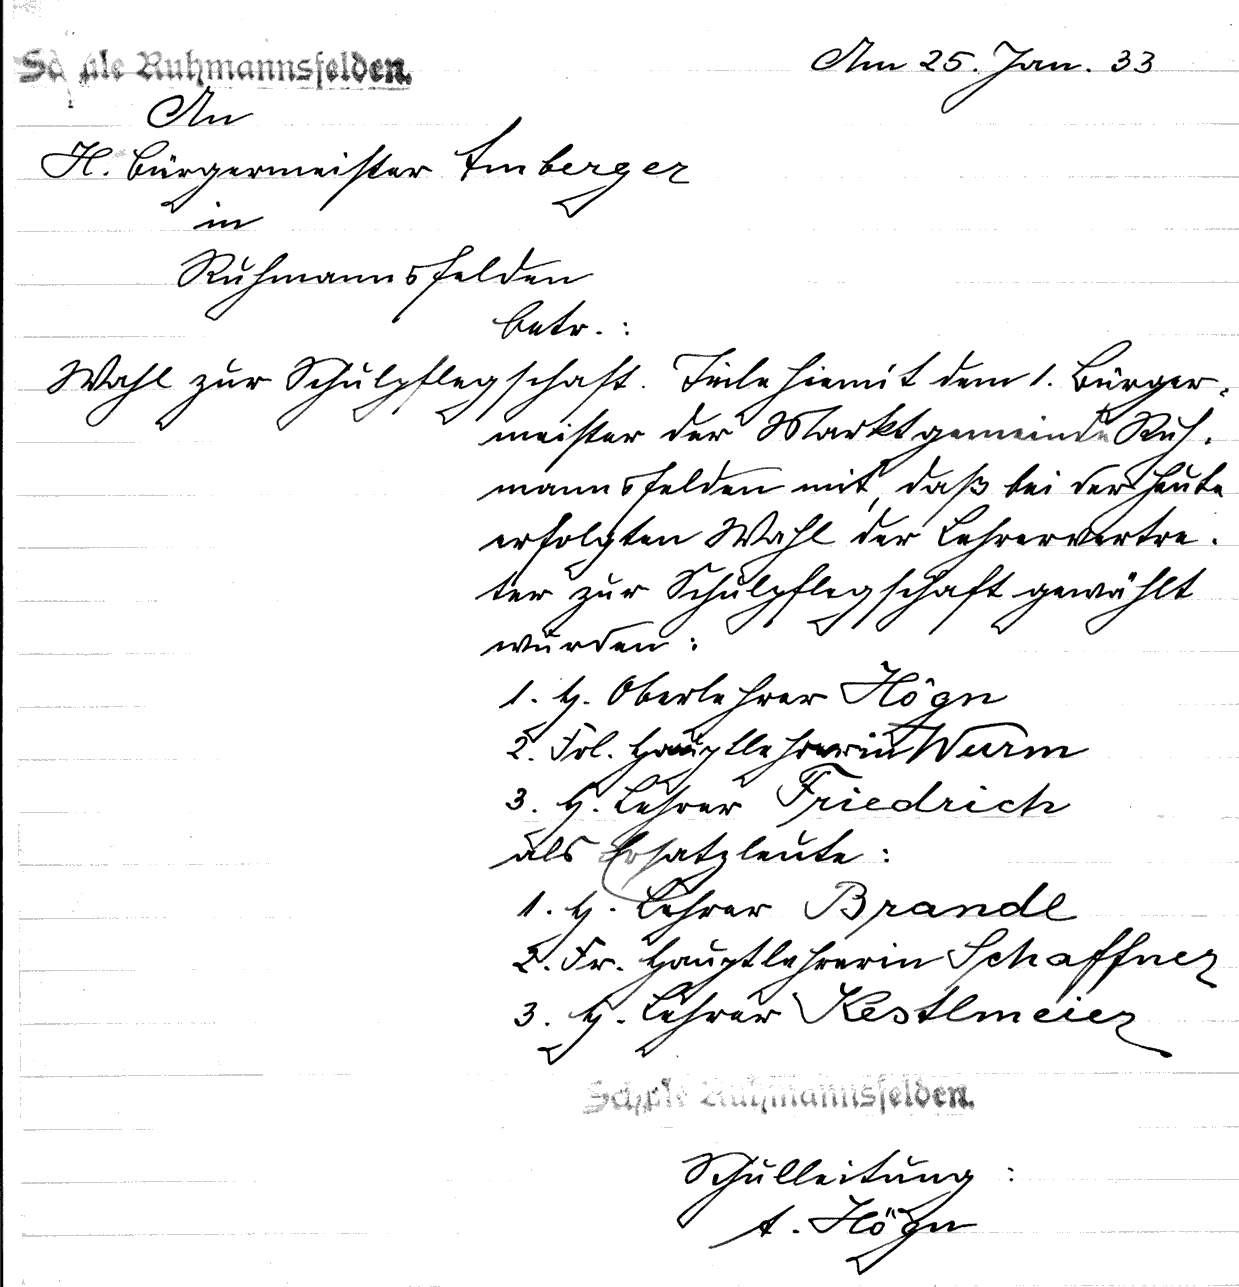 Schule Ruhmannsfelden.
Am 25. Jan. 33
An
H. Bürgermeister Amberger
in
Ruhmannsfelden
betr. :
Wahl zur Schulpflegschaft. Teile hiemit dem 1. Bürger-
meister der Marktgemeinde Ruh-
mannsfelden mit, daß bei der heute
erfolgten Wahl der Lehrervertre-
ter zur Schulpflegschaft gewählt
wurden :
1. H. Oberlehrer Högn
2. Frl. Hauptlehrerin Wurm
3. H. Lehrer Friedrich
als Ersatzleute :
1. H. Lehrer Brandl
2. Fr. Hauptlehrerin Schaffner
3. H. Lehrer Kestlmeier
Schule Ruhmannsfelden.
Schulleitung :
A. Högn